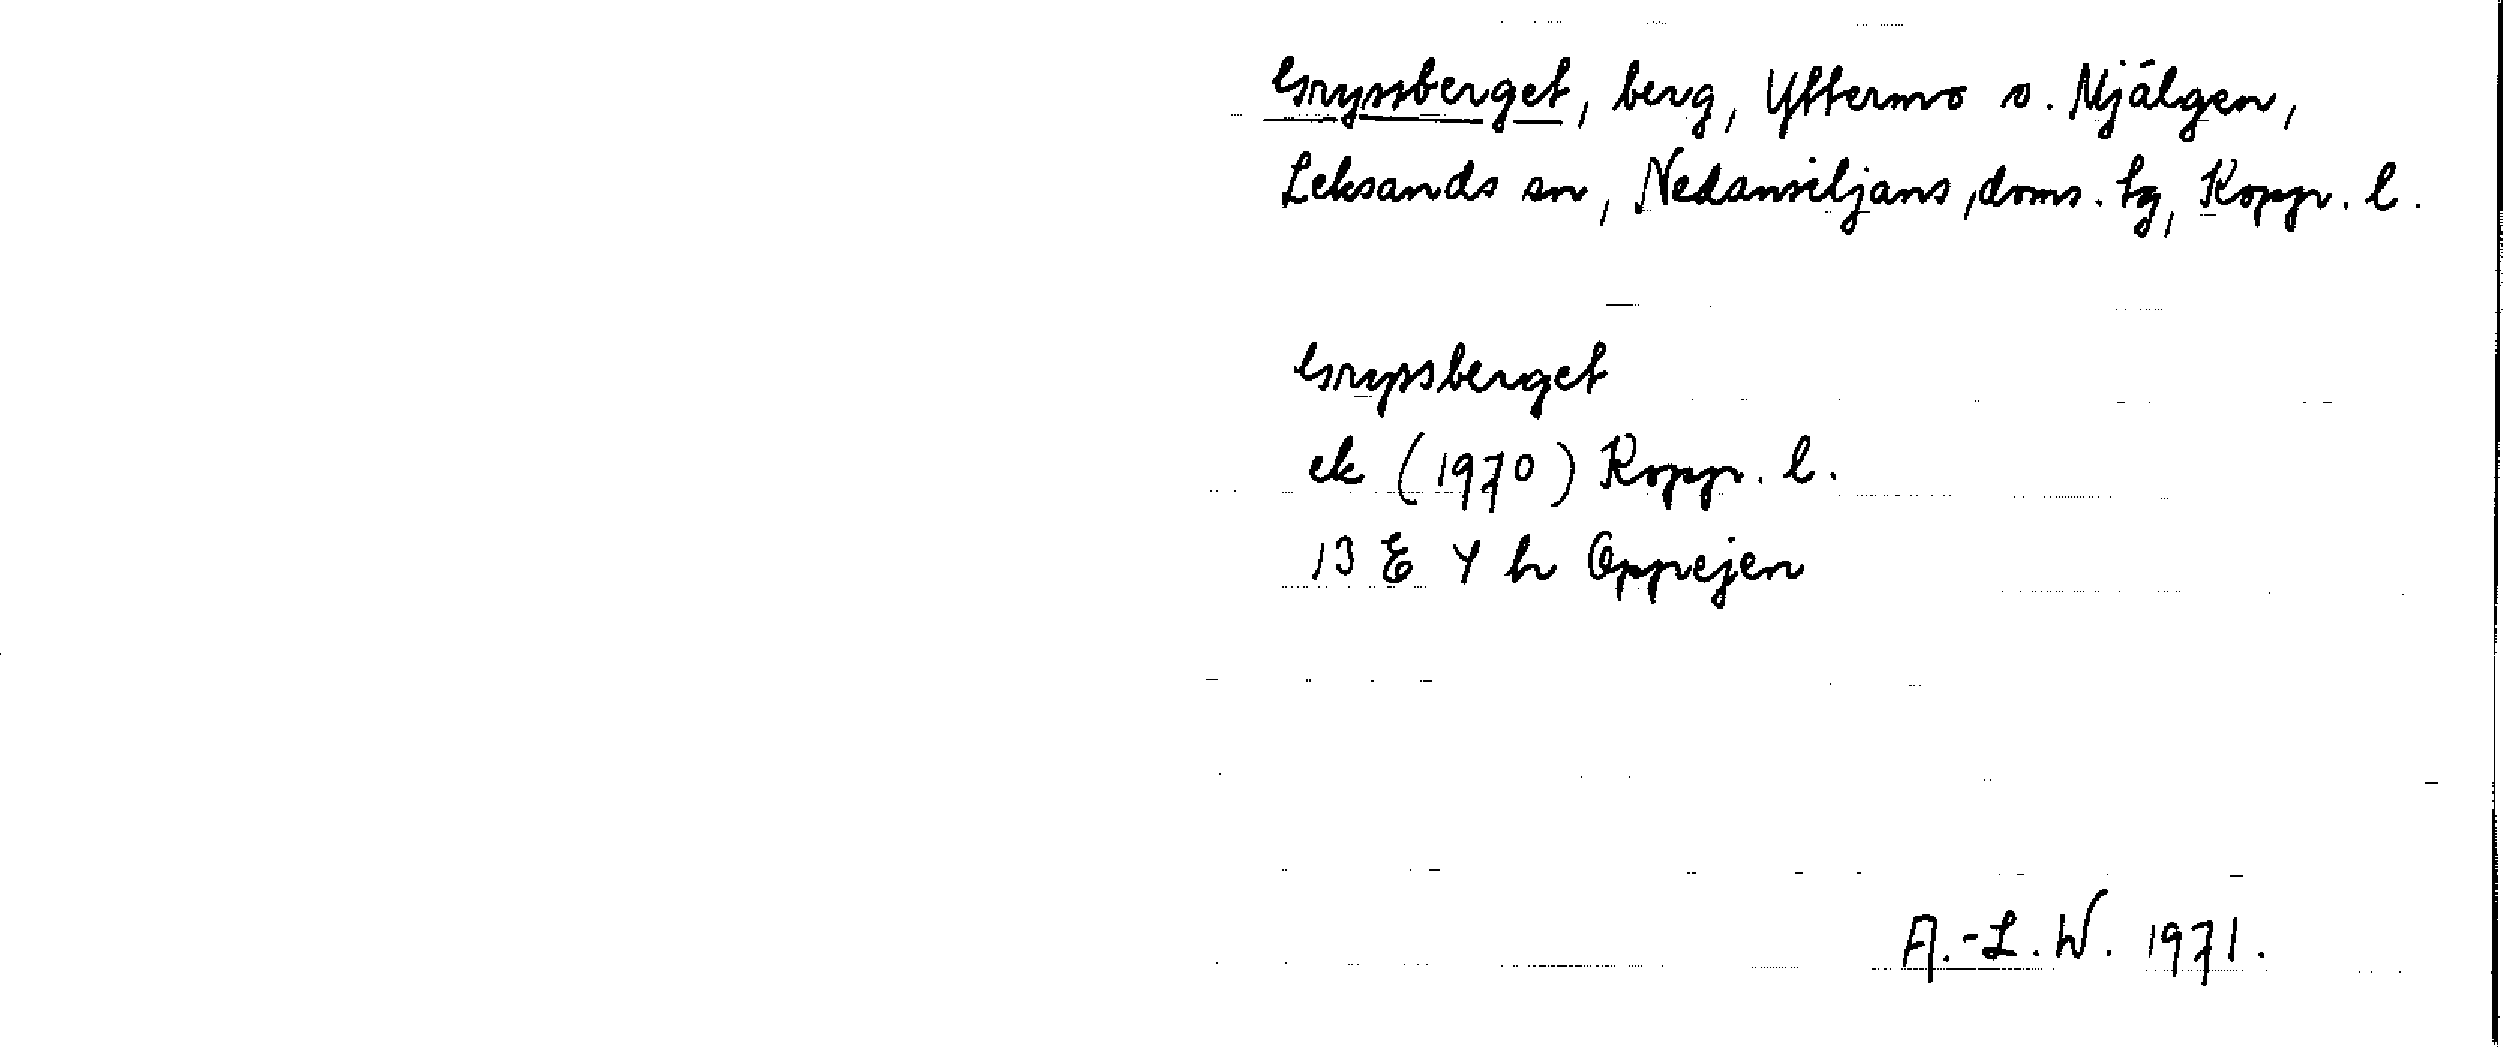 Gryssberget, berg, Yttermo o. Mjälgen,
Leksands sn, Nedansiljans doms. tg, Kopp. l.
Grysberget
ek (1970) Kopp. l.
13 E 4 h Oppejen
A.-L.W. 1971.